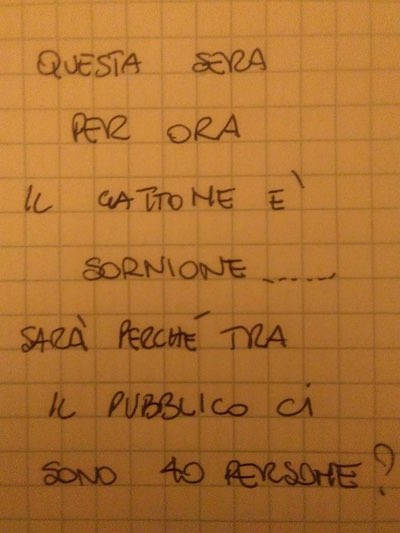 QUESTA SERA
PER ORA
IL GATTONE E'
SORNIONE ......
SARÀ PERCHÉ TRA
IL PUBBLICO Ci
SONO 40 PERSONE?